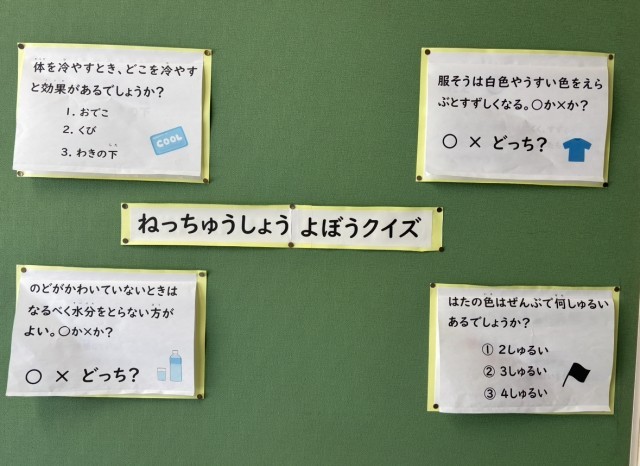 体を冷やすとき、どこを冷やす
と効果があるでしょうか?
1. おでこ
2. くび
3. わきの下
COOL
服そうは白色やうすい色をえら
ぶとすずしくなる。〇か×か?
〇 × どっち?
ねっちゅうしょう よぼうクイズ
のどがかわいていないときは
なるべく水分をとらない方が
よい。〇か×か?
〇 × どっち?
はたの色はぜんぶで何しゅるい
あるでしょうか?
① 2しゅるい
② 3しゅるい
③ 4しゅるい